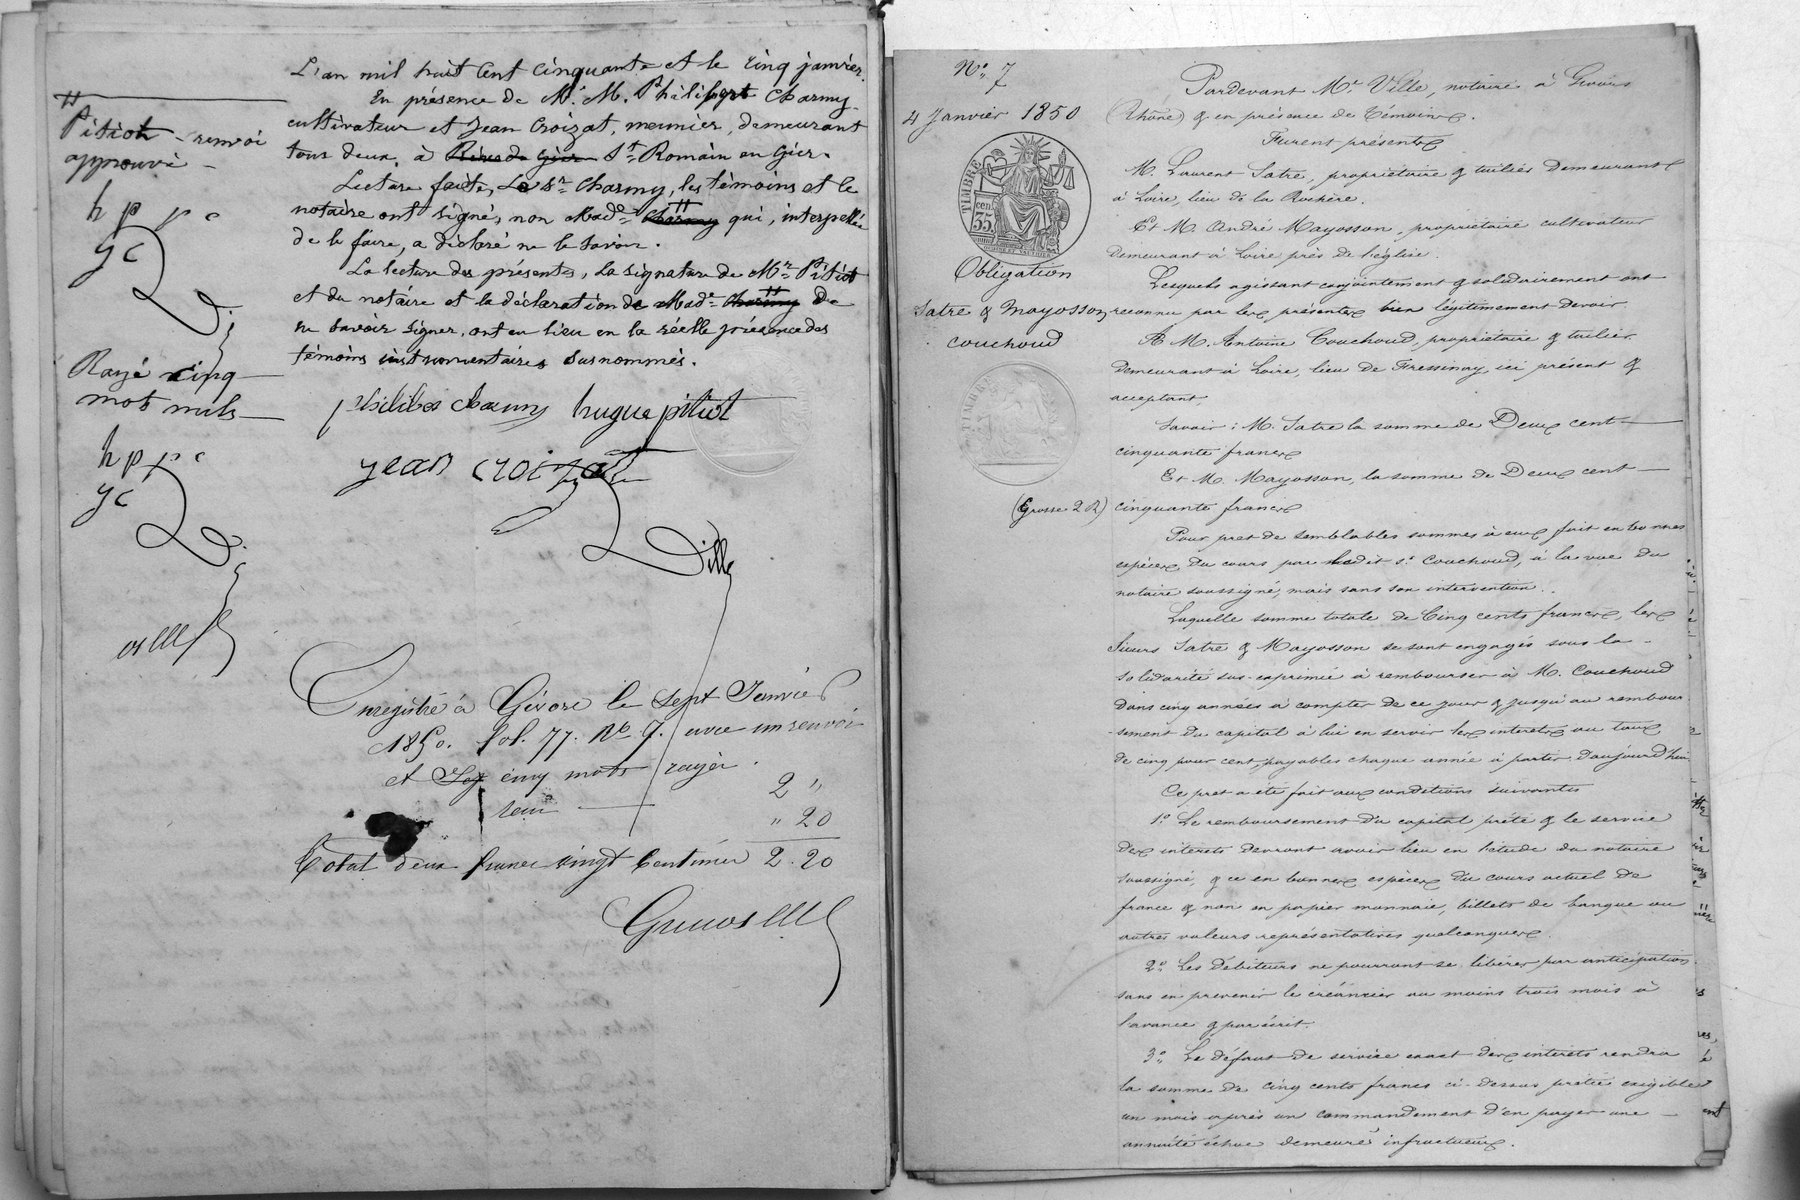 L'an mil huit cent cinquante et le cinq janvier.
En présence de M. M. Philibert Charmy
cultivateur et Jean Croizat, meunier, demeurant
tous deux, à Rive de Gier St Romain en Gier.
Lecture faite, Le Sr. Charmy, les témoins et le
notaire ont signé, non Made. Charmy qui, interpellée
de le faire, a déclaré ne le savoir.
La lecture des présentes, la signature de Mr. Pitiot
et du notaire et la déclaration de Made. Charmy de
ne savoir signer, ont eu lieu en la réelle présence des
témoins instrumentaires susnommés.
Pitiot - renvoi
approuvé -
h p p c
jc
Rayé cinq
mots nuls
h p p c
jc
philiber charmy hugue pitiot
jean croizat
Ville
Enregistré à Givors le sept Janvier
1850. fol. 77. No 7. avec un renvoi
et cinq mots rayés.
2 "
" 20
Total deux francs vingt Centimes 2.20
No. 7
4 Janvier 1850
TIMBRE
35 cen.
Obligation
Satre & Mayosson
Couchoud
TIMBRE
(Grosse 2 R)
Pardevant Me. Ville, notaire à Givors
(Rhône) & en présence de Témoins.
Furent présents
M. Laurent Satre, propriétaire & tuilier demeurant
à Loire, lieu de la Rochère.
Et M. André Mayosson, propriétaire cultivateur
demeurant à Loire près de l'église.
Lesquels agissant conjointement & solidairement ont
reconnu par les présentes bien légitimement devoir
A M. Antoine Couchoud, propriétaire & tuilier
demeurant à Loire, lieu de Fressinay ici présent &
acceptant,
Savoir: M. Satre la somme de Deux cent
cinquante francs
Et M. Mayosson, la somme de Deux cent
cinquante francs
Pour pret de semblables sommes à eux fait en bonnes
espèces du cours par ledit sr. Couchoud, à la vue du
notaire soussigné, mais sans son intervention.
Laquelle somme totale de Cinq cents francs, les
Sieurs Satre & Mayosson se sont engagés sous la
solidarité sus-exprimée à rembourser à M. Couchoud
dans cinq années à compter de ce jour & jusqu'au rembour
-sement du capital à lui en servir les interets au taux
de cinq pour cent, payables chaque année à partir d'aujourd'hui
Ce pret a été fait aux conditions suivantes
1.o Le remboursement du capital prêté & le service
des interets devront avoir lieu en l'étude du notaire
soussigné, & ce en bonnes espèces du cours actuel de
france & non en papier monnaie, billets de banque ou
autres valeurs représentatives quelconques
2.o Les Débiteurs ne pourront se libérer par anticipation
sans en prevenir le créancier au moins trois mois à
l'avance & par écrit.
3.o Le défaut de service exact des interets rendra
la somme de cinq cents francs ci-dessus prêtée exigible
un mois après un commandement d'en payer une
annuité échue demeuré infructueux.